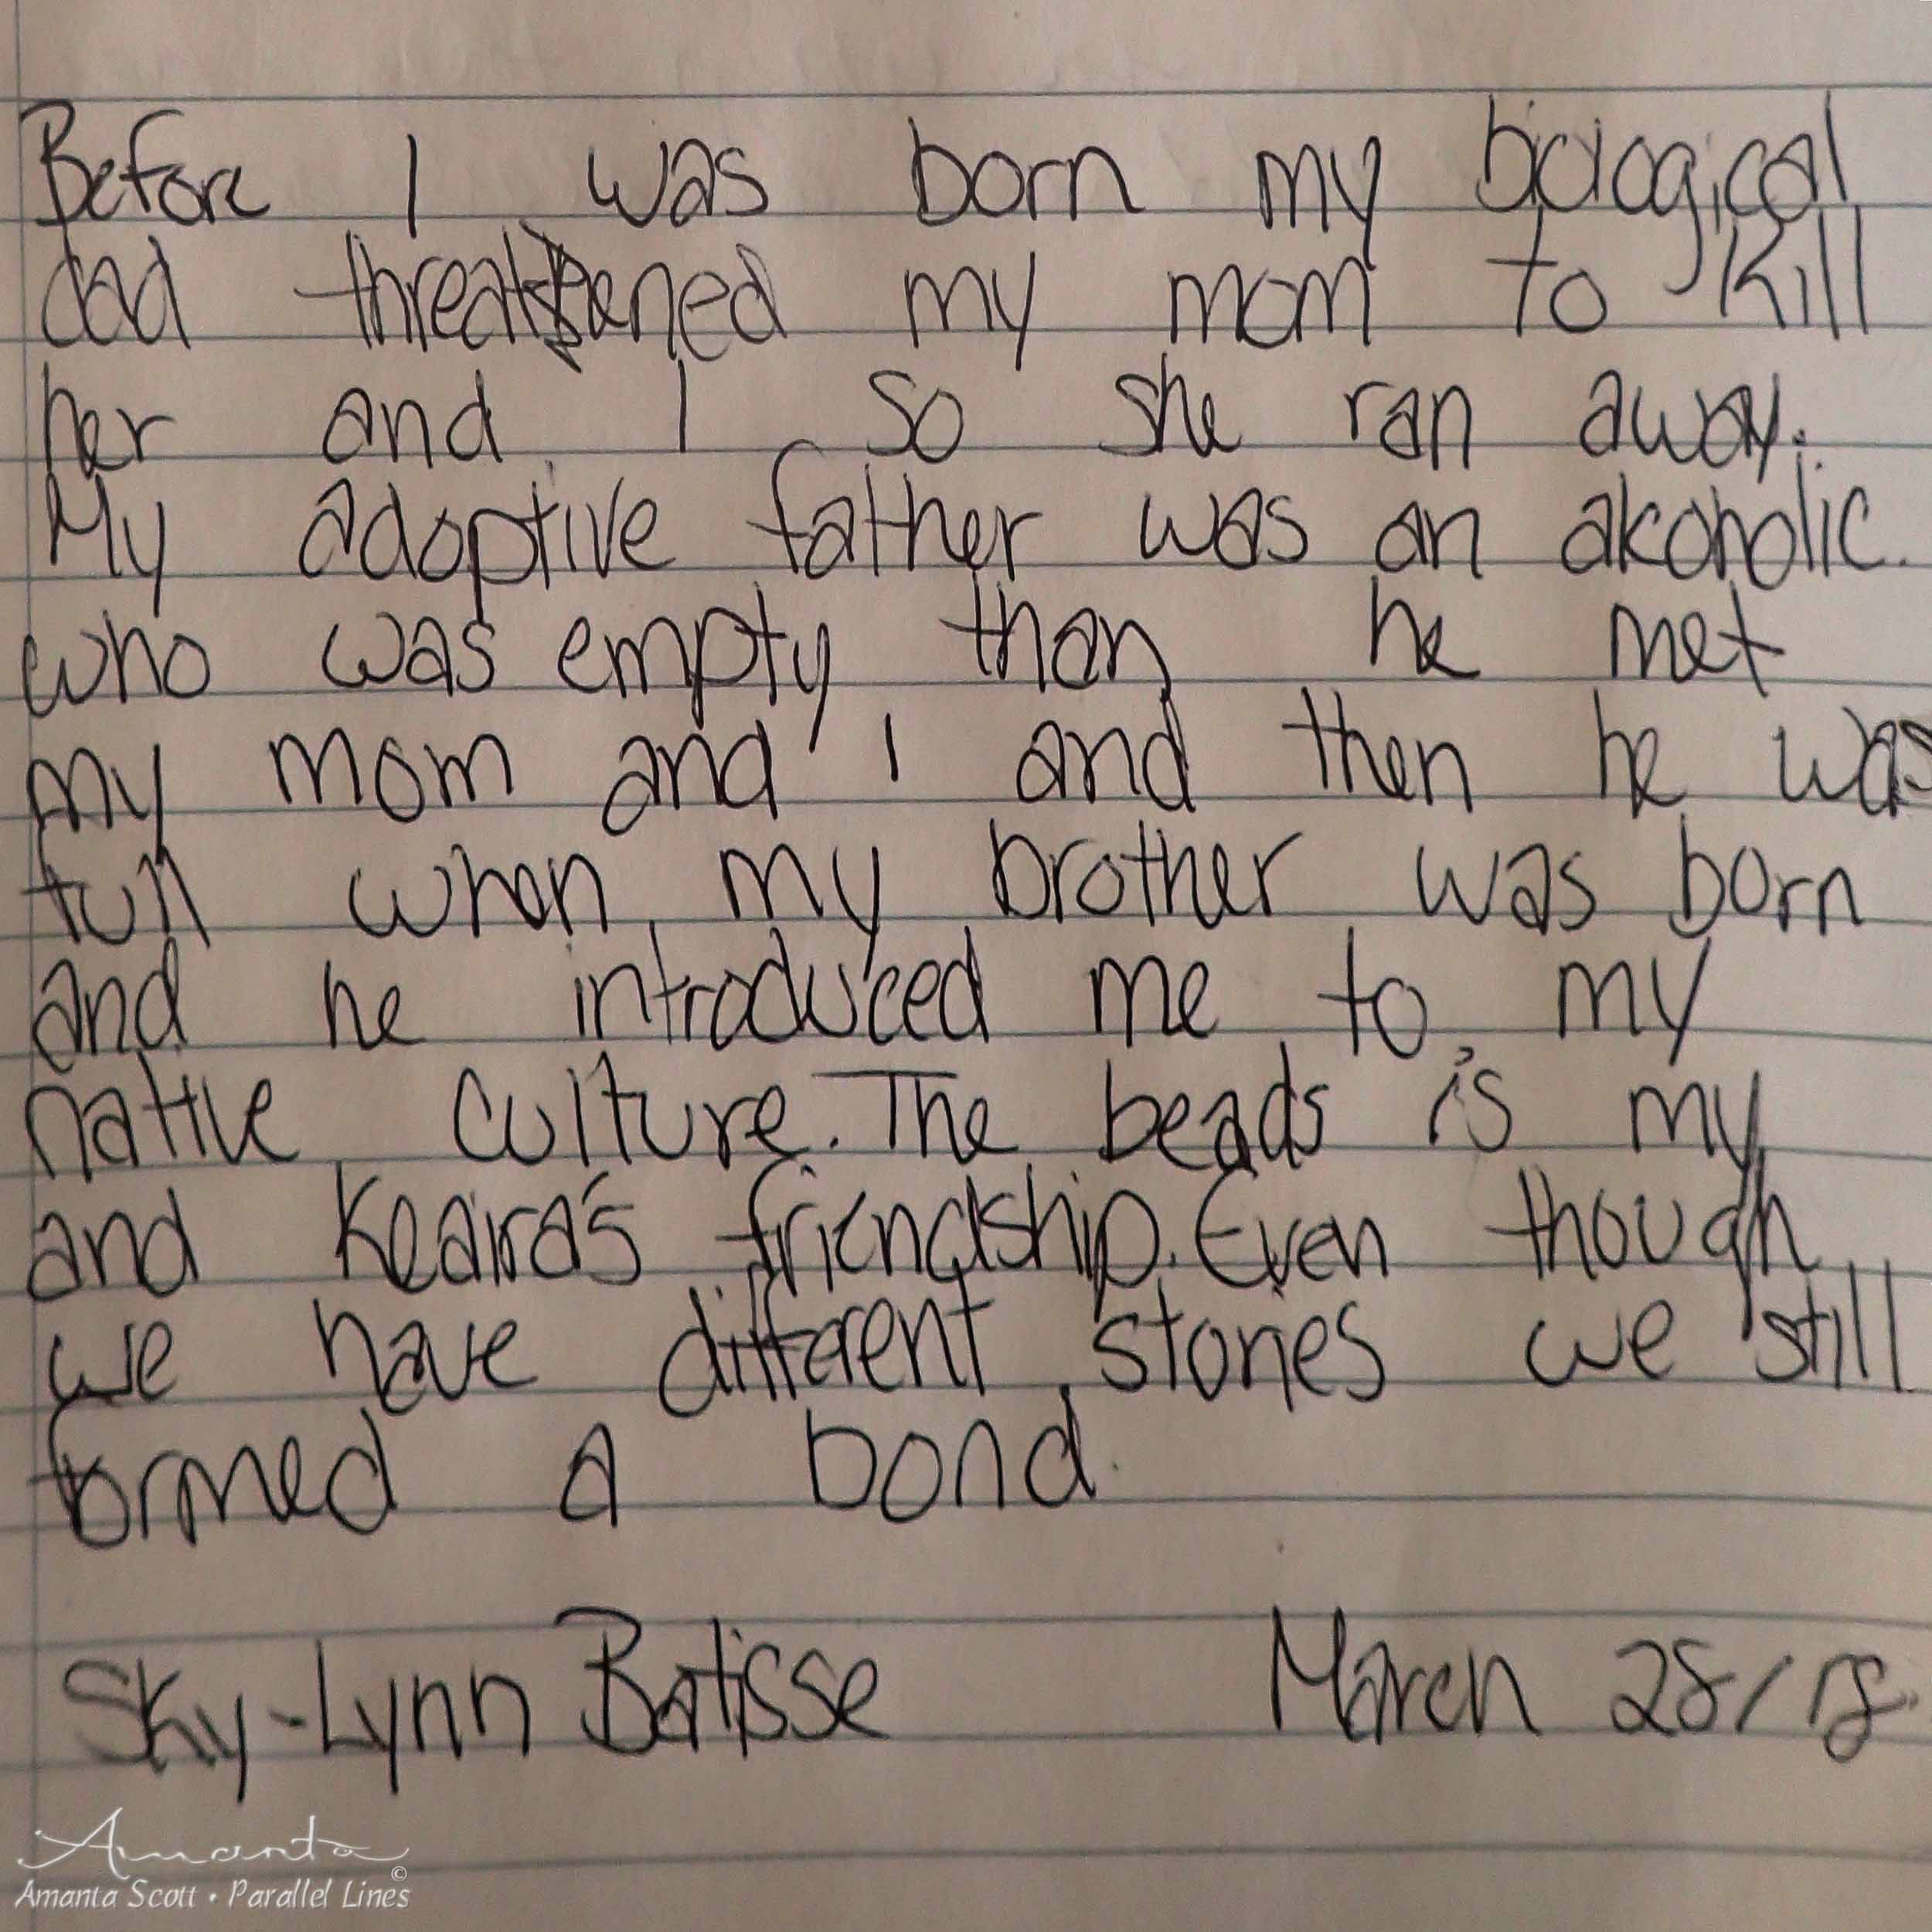 Before I was born my biological
dad threatened my mom to kill
her and I so she ran away.
My adoptive father was an akoholic.
who was empty than he met
my mom and I and then he was
full when my brother was born
and he introduced me to my
native culture. The beads is my
and Keaira's friendship. Even though
we have different stories we still
formed a bond.
Sky-Lynn Batisse March 28/18.
Amanta
©
Amanta Scott • Parallel Lines